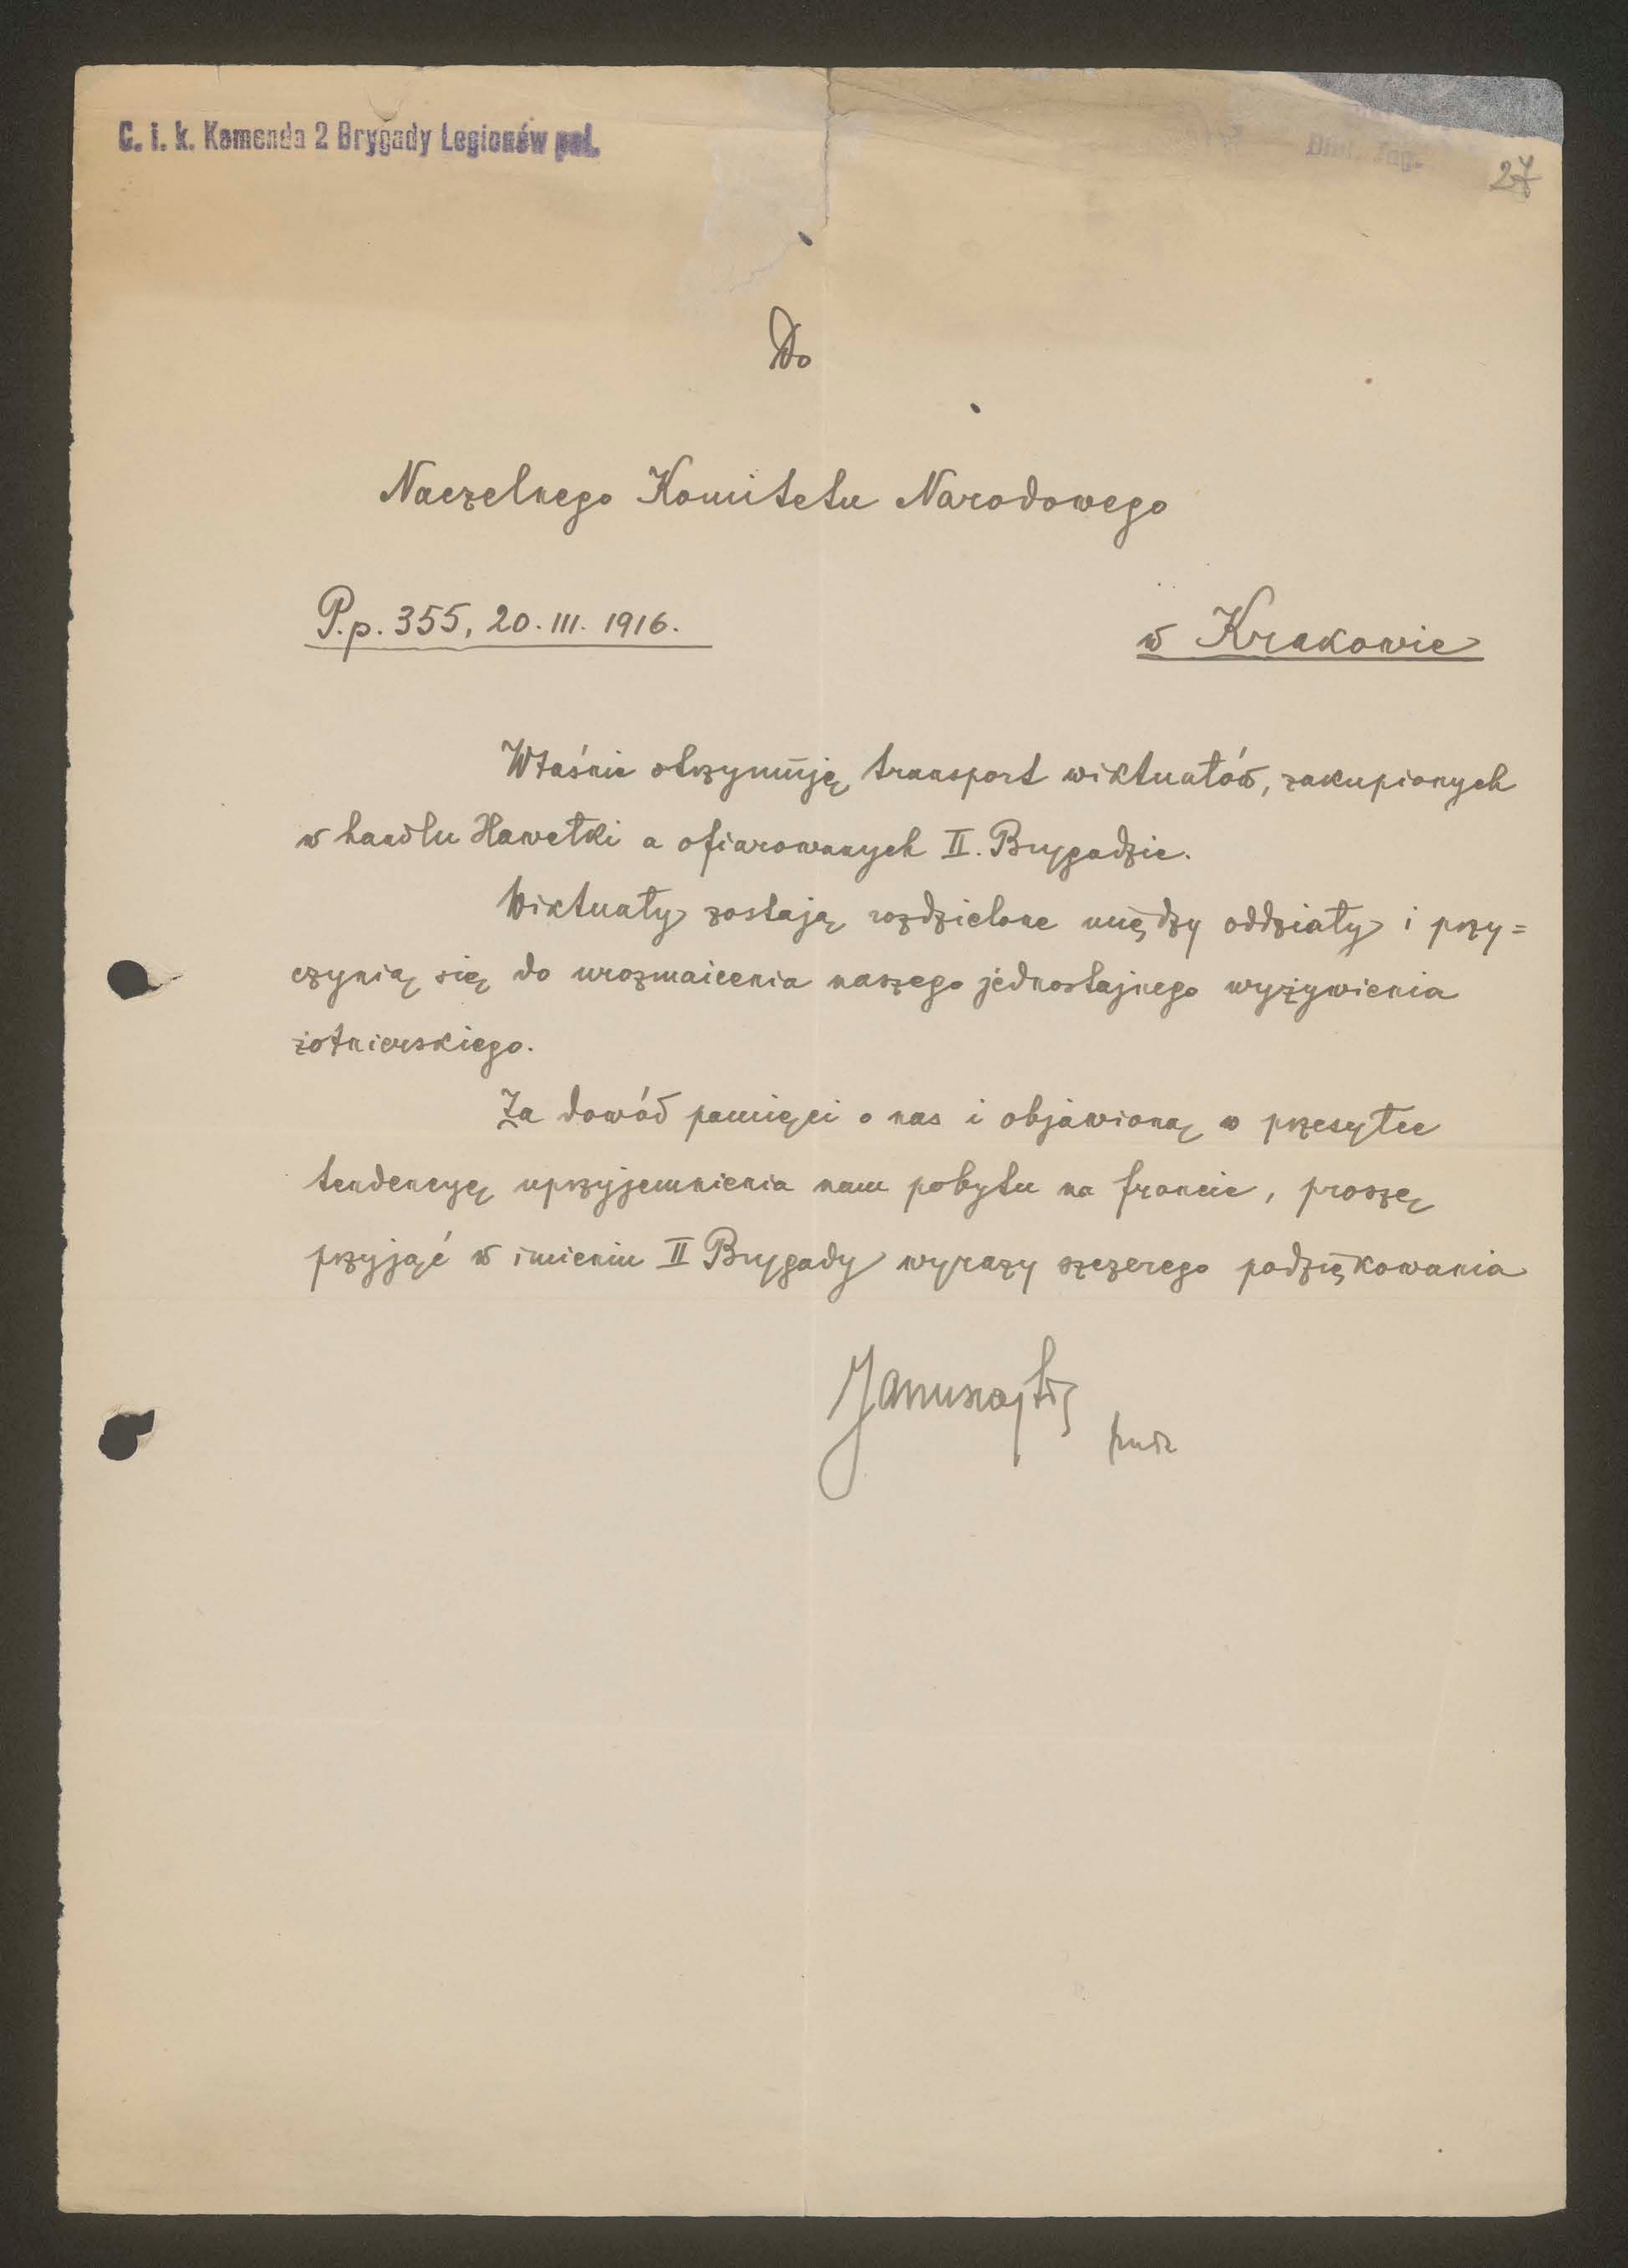 C. i. k. Komenda 2 Brygady Legionów pol.
Bibl. Jag.
27
Do
Naczelnego Komitetu Narodowego
P.p. 355, 20. III. 1916.
w Krakowie
Właśnie otrzymuję transport wiktuałów, zakupionych
w handlu Hawełki a ofiarowanych II. Brygadzie.
Wiktuały zostają rozdzielone między oddziały i przy=
czynią się do urozmaicenia naszego jednostajnego wyżywienia
żołnierskiego.
Za dowód pamięci o nas i objawioną w przesyłce
tendencyę uprzyjemnienia nam pobytu na froncie, proszę
przyjąć w imieniu II Brygady wyrazy szczerego podziękowania
Januszajtis